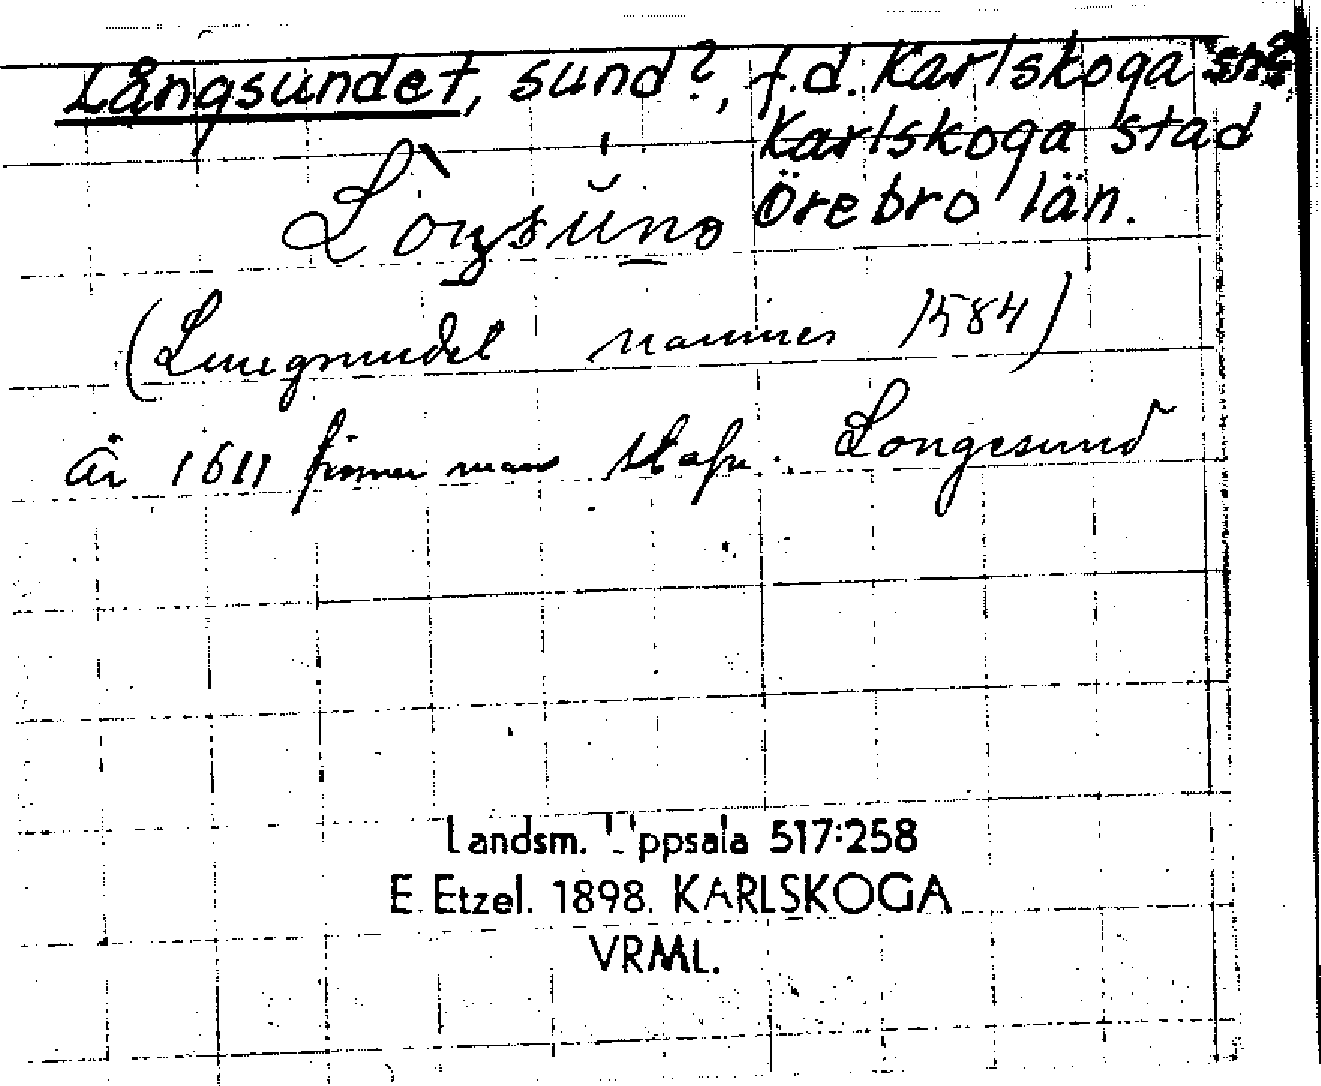 Långsundet, sund?, f.d. Karlskoga sn?
Karlskoga stad
Örebro län.
(Lungsundet nämnes 1584)
År 1611 finner man Longesund
Landsm. Uppsala 517:258
E. Etzel. 1898. KARLSKOGA
VRML.